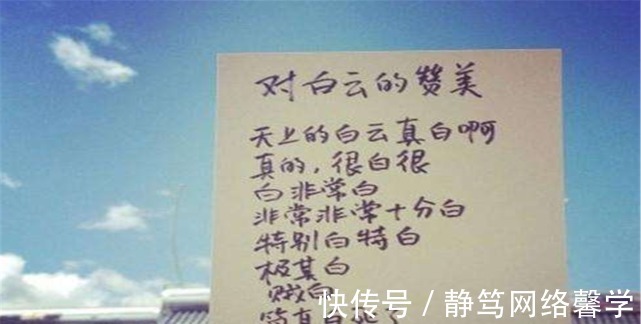 对白云的赞美
天上的白云真白啊
真的，很白很
白非常白
非常非常十分白
特别白特白
极其白
贼白
简直白死了
快传号 / 静笃网络馨学